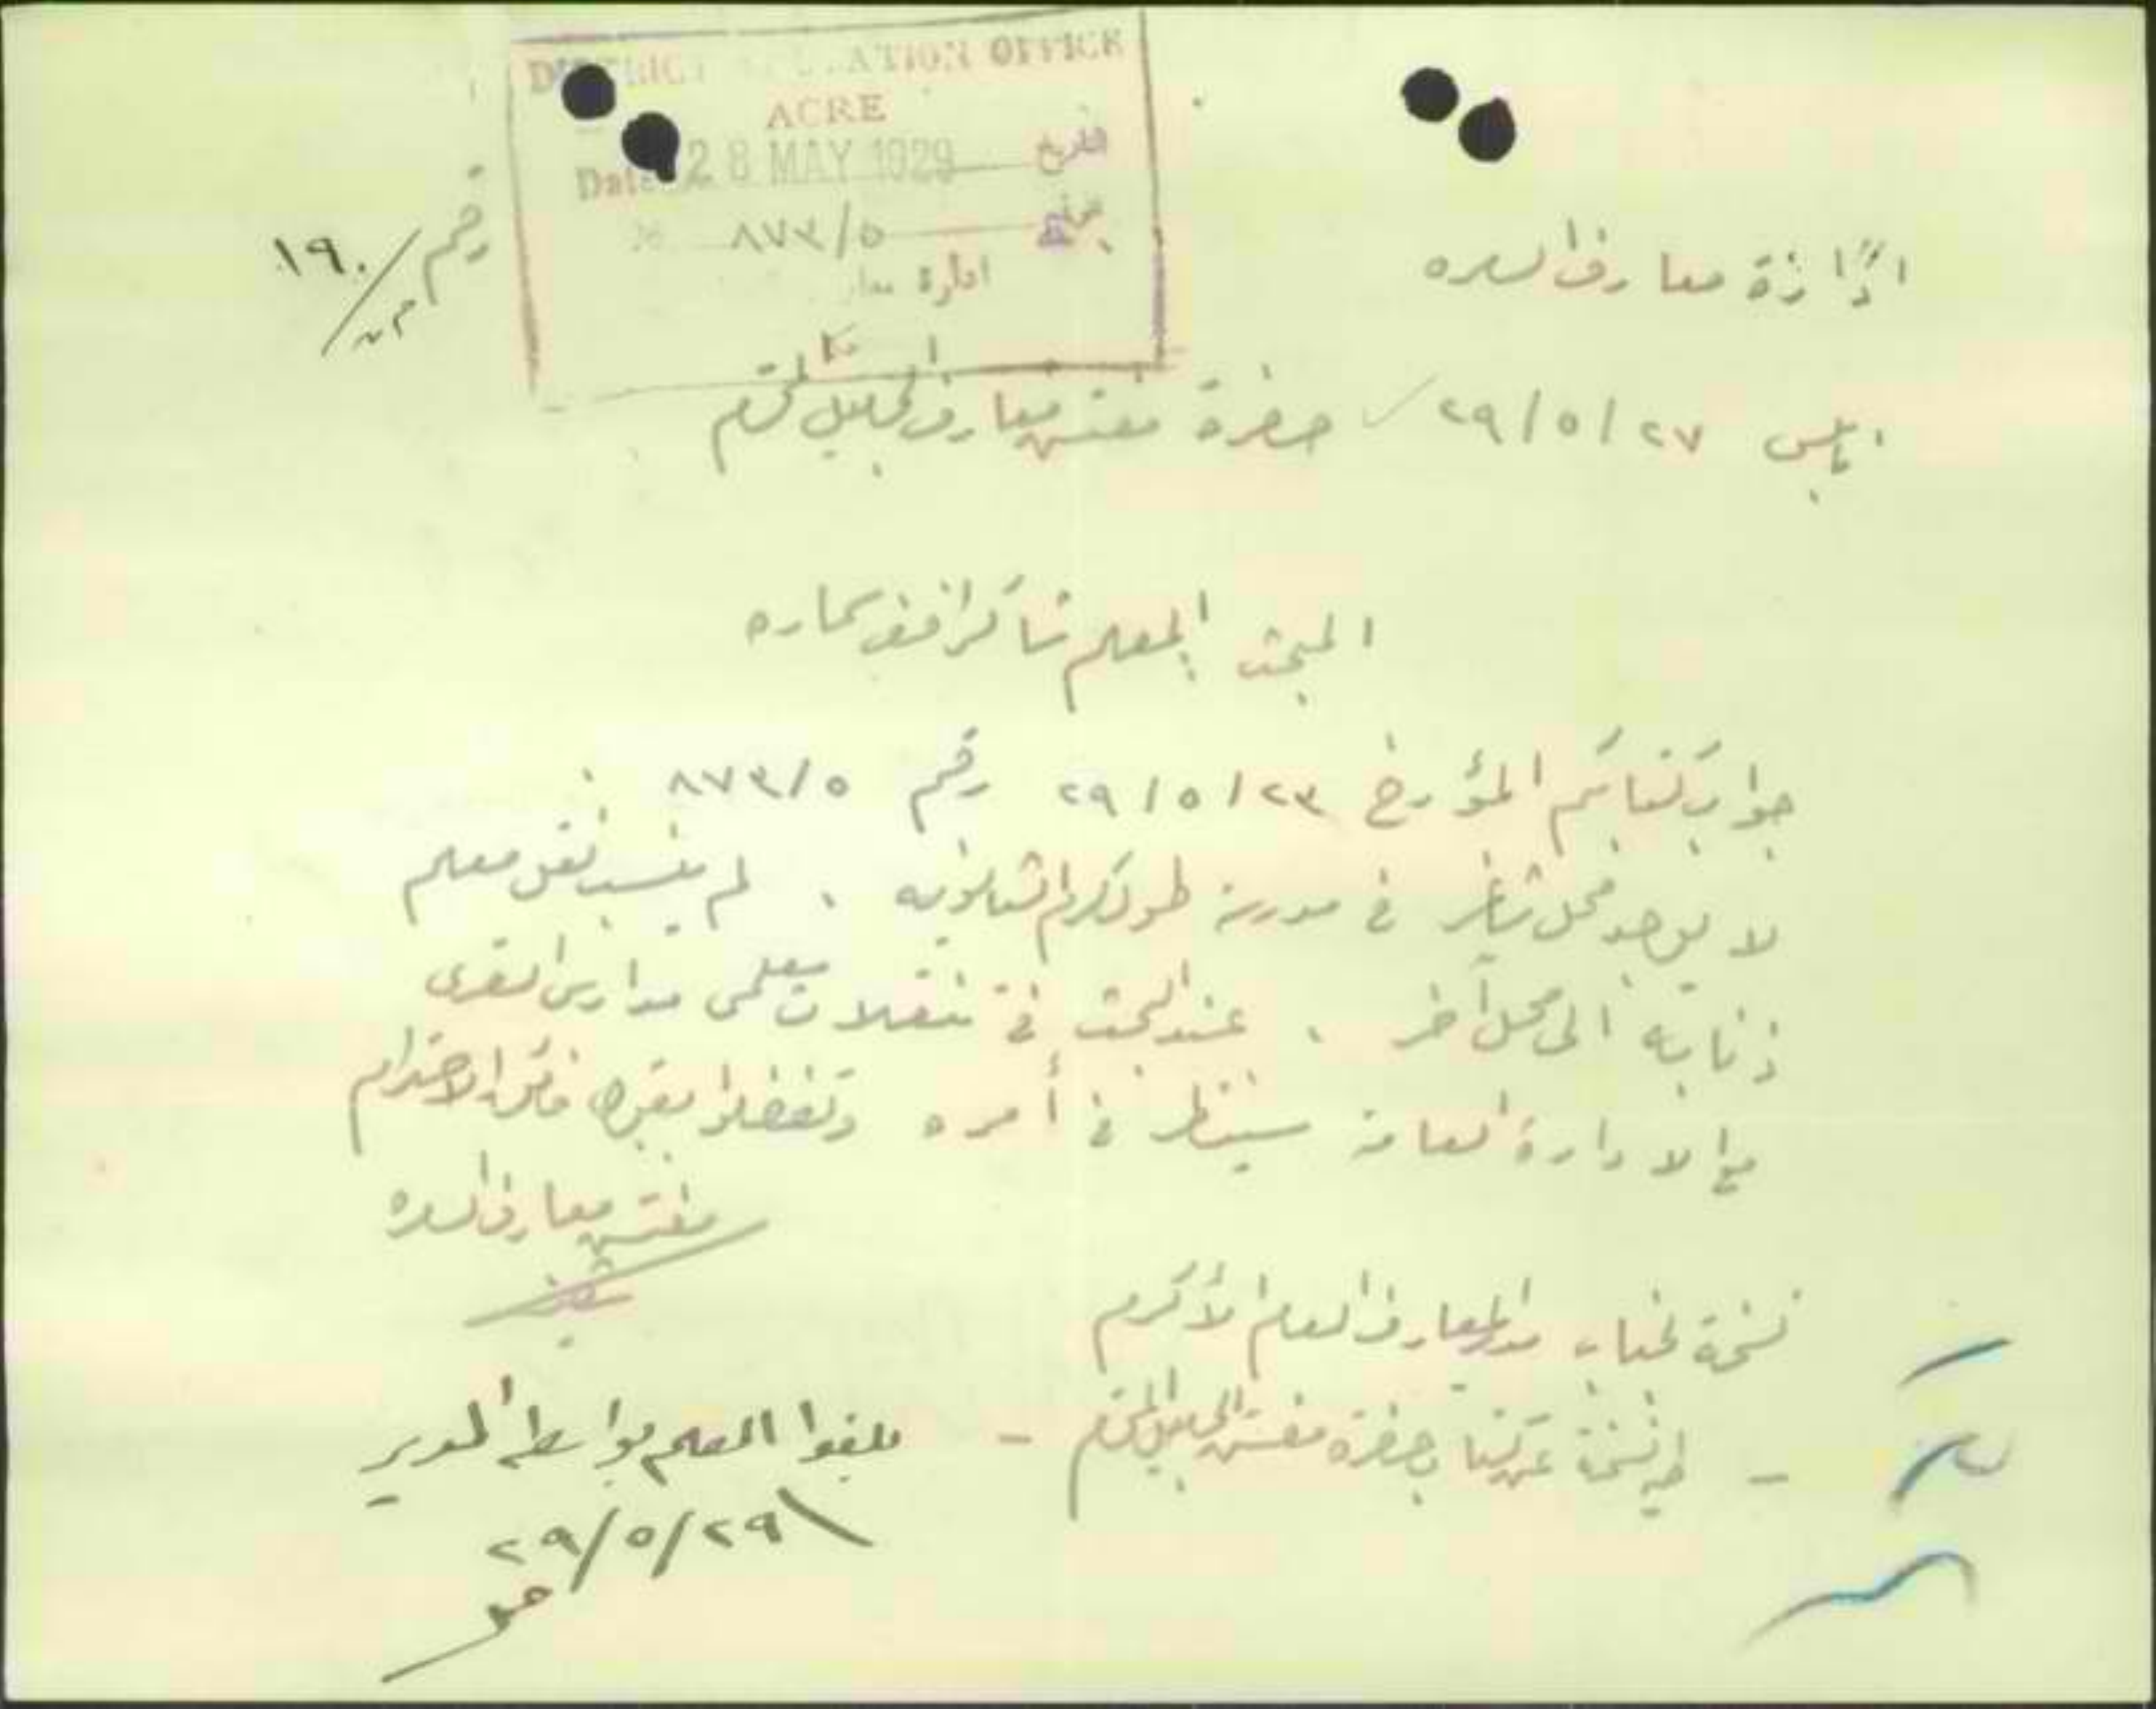 DISTRICT EDUCATION OFFICE
ACRE
Date 28 MAY 1929 التاريخ
٨٧٣/٥
ادارة
رقم ١٩٠/
ادارة معارف السامره
نابلس ٢٩/٥/٢٧ حضرة مفتش معارف الجليل المحترم
المبحث المعلم شاكر افندي سماره
جواب كتابكم المؤرخ ٢٩/٥/٢٣ رقم ٨٧٣/٥
لا يوجد محل شاغر في مدرسة طولكرم الثانويه . لم ينسب نقل معلم
ذنابه الى محل آخر . عند البحث في تنقلات معلمي مدارس القرى
مع الادارة العامة سينظر في أمره وتفضلوا بقبول فائق الاحترام
مفتش معارف السامره
نسخة لجناب مدير المعارف العام الأكرم
- نسخة عن كتاب حضرة مفتش الجليل المحترم -
بلغوا المعلم بواسطة المدير
٢٩/٥/٢٩